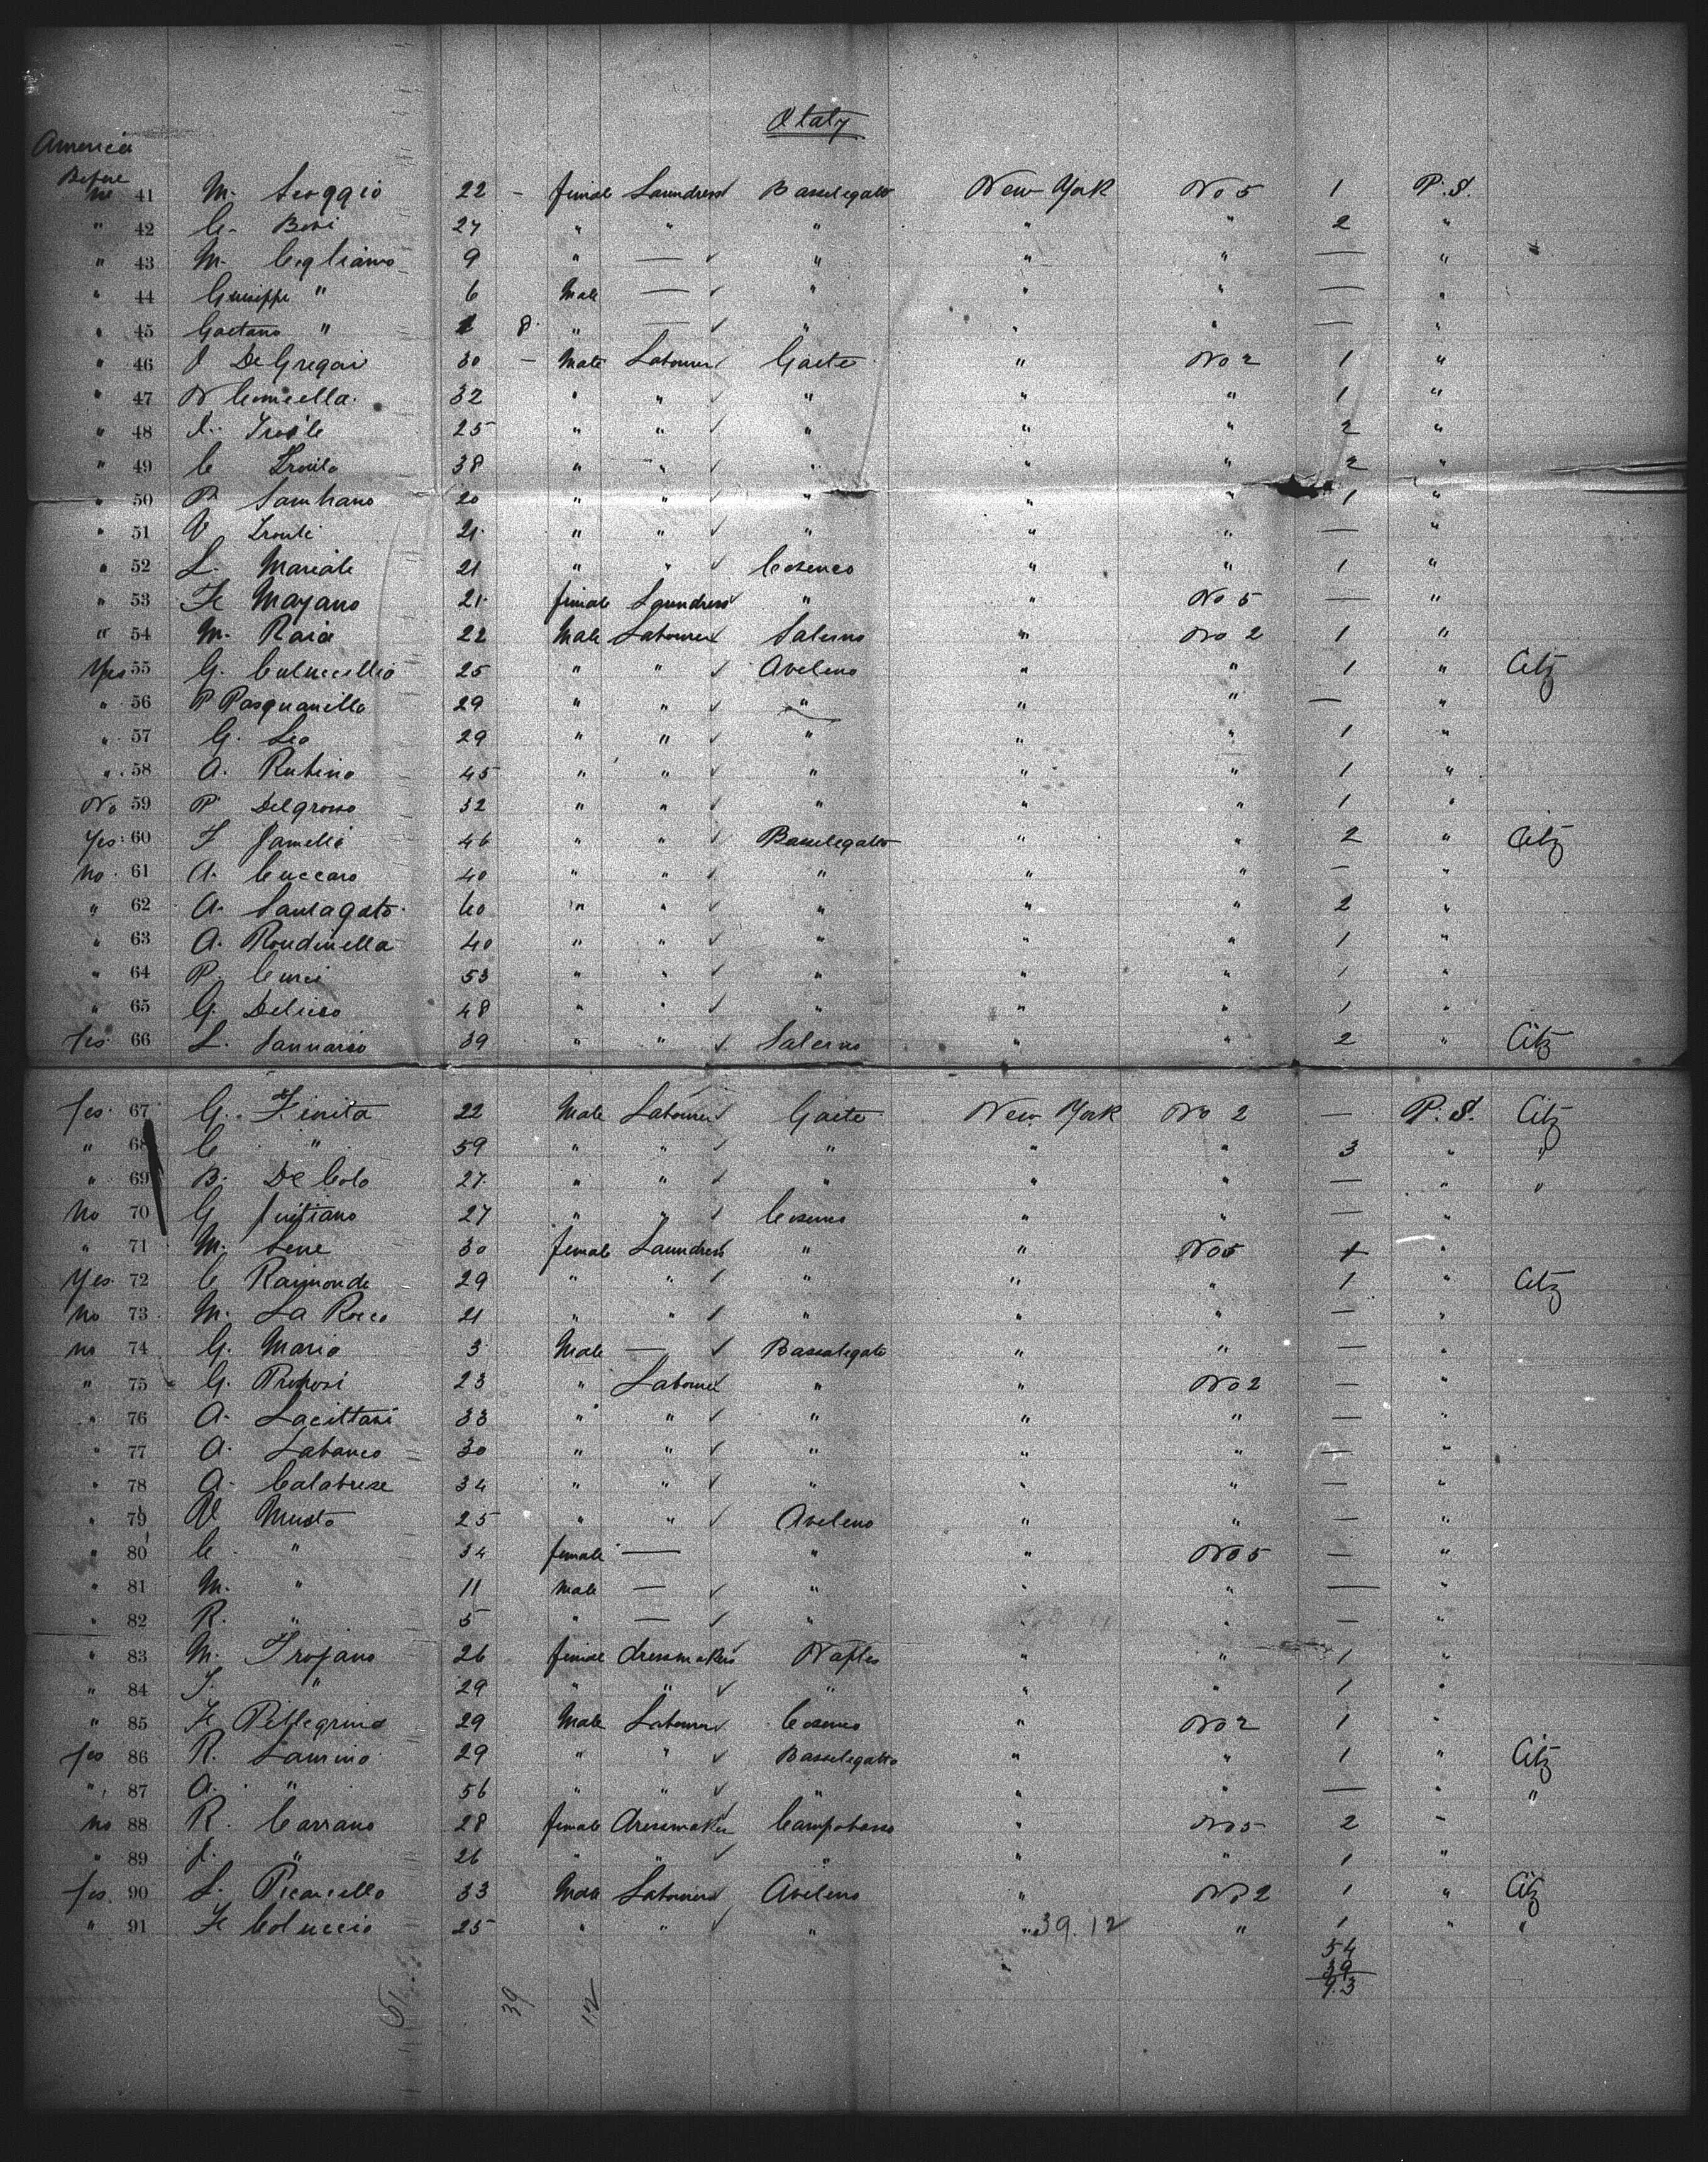 Italy
America
Before
no 41 M. Scoggio 22 - female Laundress Basselegatto New York No 5 1 P.S.
" 42 C. Bosi 27 " " " " " 2 "
" 43 M. Cegliano 9 " — " " " — "
" 44 Guiseppe " 6 Male — " " " — "
" 45 Gaetano " 8 " — " " " — "
" 46 De Gregori 30 - Male Labourer Gaete " No 2 1 "
" 47 N 32 " " " " " 1 "
" 48 25 " " " " " 2 "
" 49 C 38 " " " " " 2 "
" 50 P. 20 " " " " " 1 "
" 51 V 21 " " " " " — "
" 52 L. Mariale 21 " " Cosenco " " 1 "
" 53 Fc Mayano 21 female Laundress " " No 5 — "
" 54 M. Raia 22 Male Labourer Salerno " No 2 1 "
Yes 55 G. Caluccellio 25 " " Aveleno " " 1 " Citz
" 56 P Pasquariello 29 " " " " " — "
" 57 G. Leo 29 " " " " " 1 "
" 58 A. Rubino 45 " " " " " 1 "
No 59 P Delgrosso 32 " " " " " 1 "
Yes 60 F Jamelio 46 " " Basselegatto " " 2 " Citz
No 61 A. Cuccaro 40 " " " " " — "
" 62 A. Santagato 60 " " " " " 2 "
" 63 A. Rondinella 40 " " " " " 1 "
" 64 P. Curci 53 " " " " " 1 "
" 65 G. 48 " " " " " 1 "
Yes 66 L. Iannario 39 " " Salerno " " 2 " Citz
Yes 67 G. Finita 22 Male Labourer Gaete New York No 2 — P.S. Citz
" 68 C " 59 " " " " " 3 " "
" 69 B. De Colo 27 " " " " " — " "
No 70 G 27 " " Cosenco " " — "
" 71 M. Sene 30 female Laundress " " No 5 "
Yes 72 C Raimonde 29 " " " " " 1 " Citz
No 73 M. La Rocco 21 " " " " " — "
no 74 G. Mario 3 Male — Basselegatto " " — "
" 75 G. Proposi 23 " Labourer " " No 2 — "
" 76 A. Lacittasi 33 " " " " " — "
" 77 A. Labanco 30 " " " " " — "
" 78 A. Calabrese 34 " " " " " — "
" 79 V Musto 25 " " Aveleno " " — "
" 80 C " 34 female — " " No 5 — "
" 81 M. " 11 male — " " " — "
" 82 R. " 5 " — " " " — "
" 83 M. Trojano 26 female dressmaker Naples " " 1 "
" 84 " 29 " " " " " 1 "
" 85 Fc Pellegrino 29 Male Labourer Cosenco " No 2 1 "
Yes 86 R. Laurino 29 " " Basselegatto " " 1 " Citz
" 87 A. " 56 " " " " " — " "
No 88 R. Carrano 28 female dressmaker Campobasso " No 5 2 "
" 89 " 26 " " " " " 1 "
Yes 90 L. Picariello 33 Male Labourer Aveleno " No 2 1 " Citz
" 91 Fc Coluccio 25 " " " " 39.12 " 1 " "
54
39
93
39
12